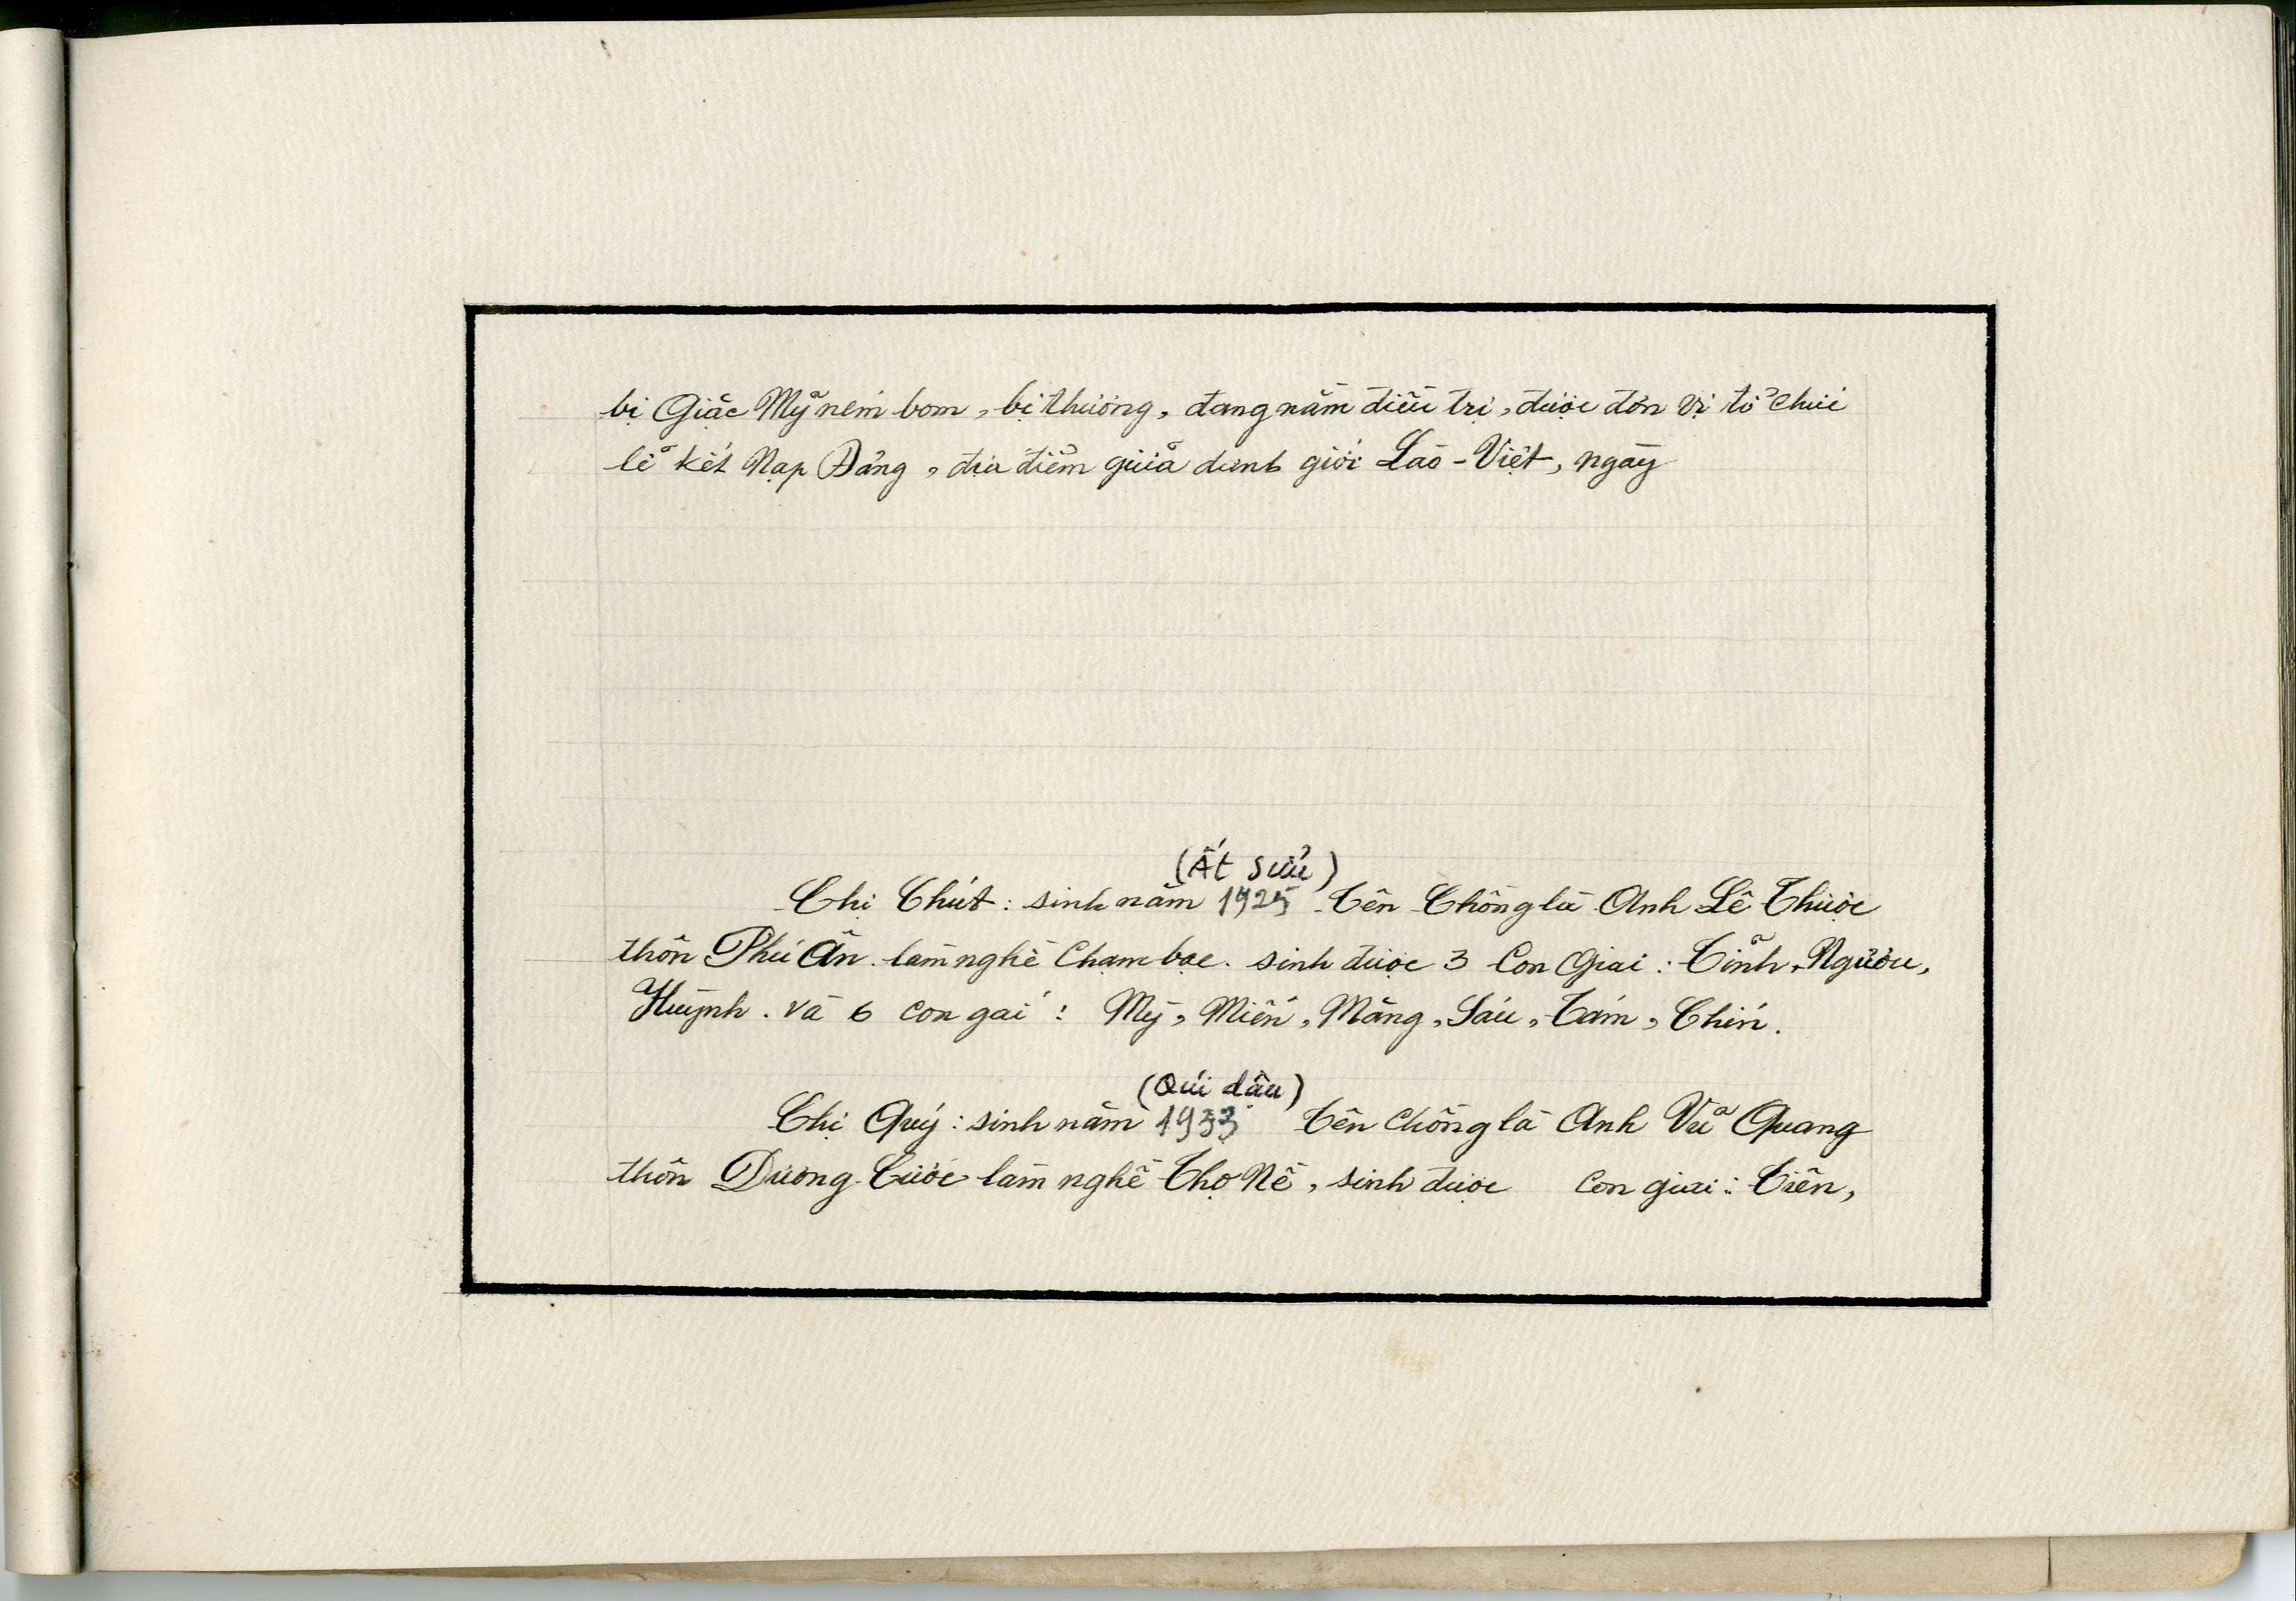 bị Giặc Mỹ ném bom, bị thương, đang nằm điều trị, được đơn vị tổ chức
lễ kết Nạp Đảng, địa điểm giữa danh giới Lào - Việt, ngày
(Ất sửu)
Chị Chút: sinh năm 1925 Tên Chồng là Anh Lê Thược
thôn Phú Ân. làm nghề Chạm bạc. sinh được 3 Con Giai: Tỉnh, Ngườu,
Huỳnh. và 6 con gái: Mỳ, Miến, Măng, Sáu, Tám, Chín.
(Quí dậu)
Chị Quý: sinh năm 1933 Tên chồng là Anh Vũ Quang
thôn Dương Cước làm nghề Thợ Nề, sinh được con giai: Tiên,